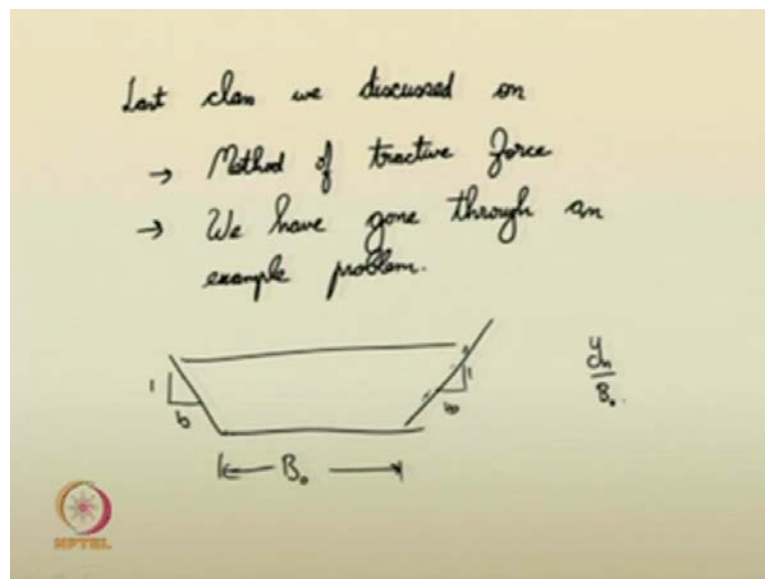 Last class we discussed on
→ Method of tractive force
→ We have gone through an
example problem.
1
b
1
yn
B₀.
B₀
NPTEL